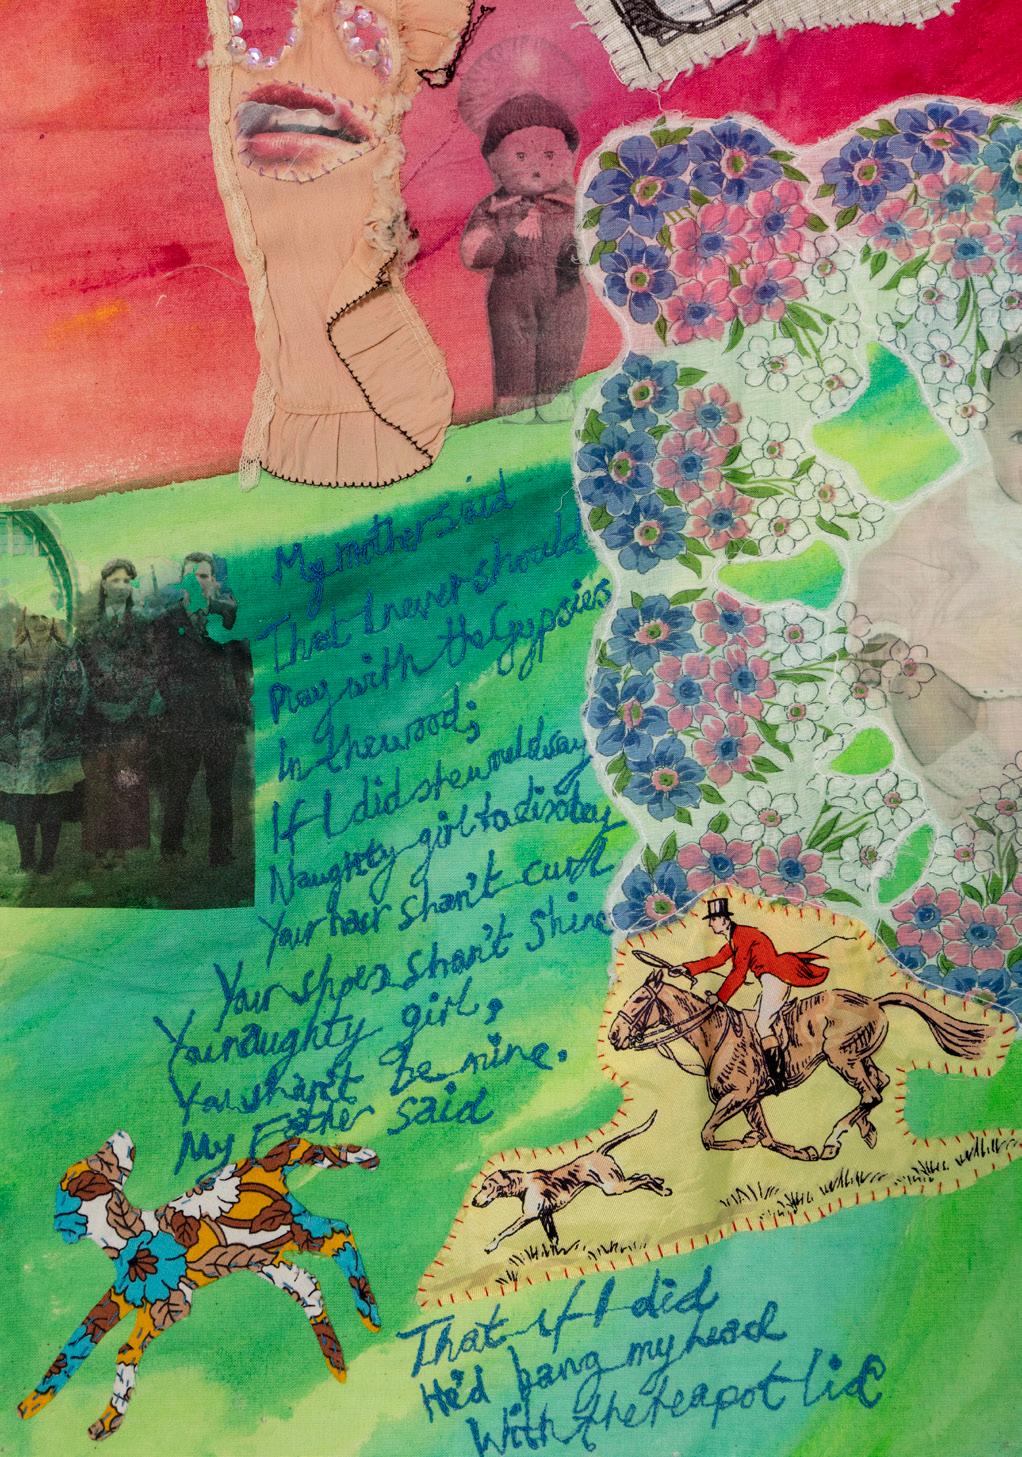 My mother said
That I never should
Play with the Gypsies
In the wood;
If I did she would say
Naughty girl to disobey
Your hair shan't curl
Your shoes shan't shine
You naughty girl,
You shan't be mine.
My Father said
That if I did
He'd bang my head
With the teapot lid